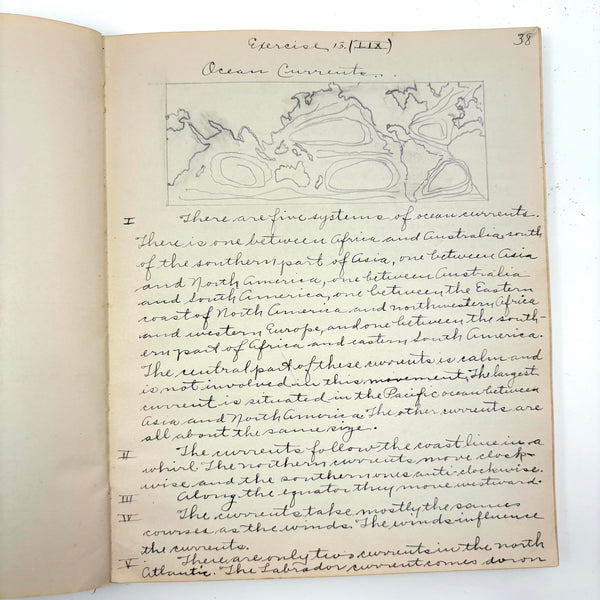 38
Exercise 13. (LIX)
Ocean Currents.
I There are five systems of ocean currents.
There is one between Africa and Australia south
of the southern part of Asia, one between Asia
and North America, one between Australia
and South America, one between the Eastern
coast of North America and northwestern Africa
and western Europe, and one between the south-
ern part of Africa and eastern South America.
The central part of these currents is calm and
is not involved in this movement. The largest
current is situated in the Pacific ocean between
Asia and North America. The other currents are
all about the same size.
II The currents follow the coast line in a
whirl. The northern currents move clock-
wise and the southern ones anti-clockwise.
III Along the equator they move westward.
IV The currents take mostly the same
courses as the winds. The winds influence
the currents.
V There are only two currents in the north
Atlantic. The Labrador current comes down